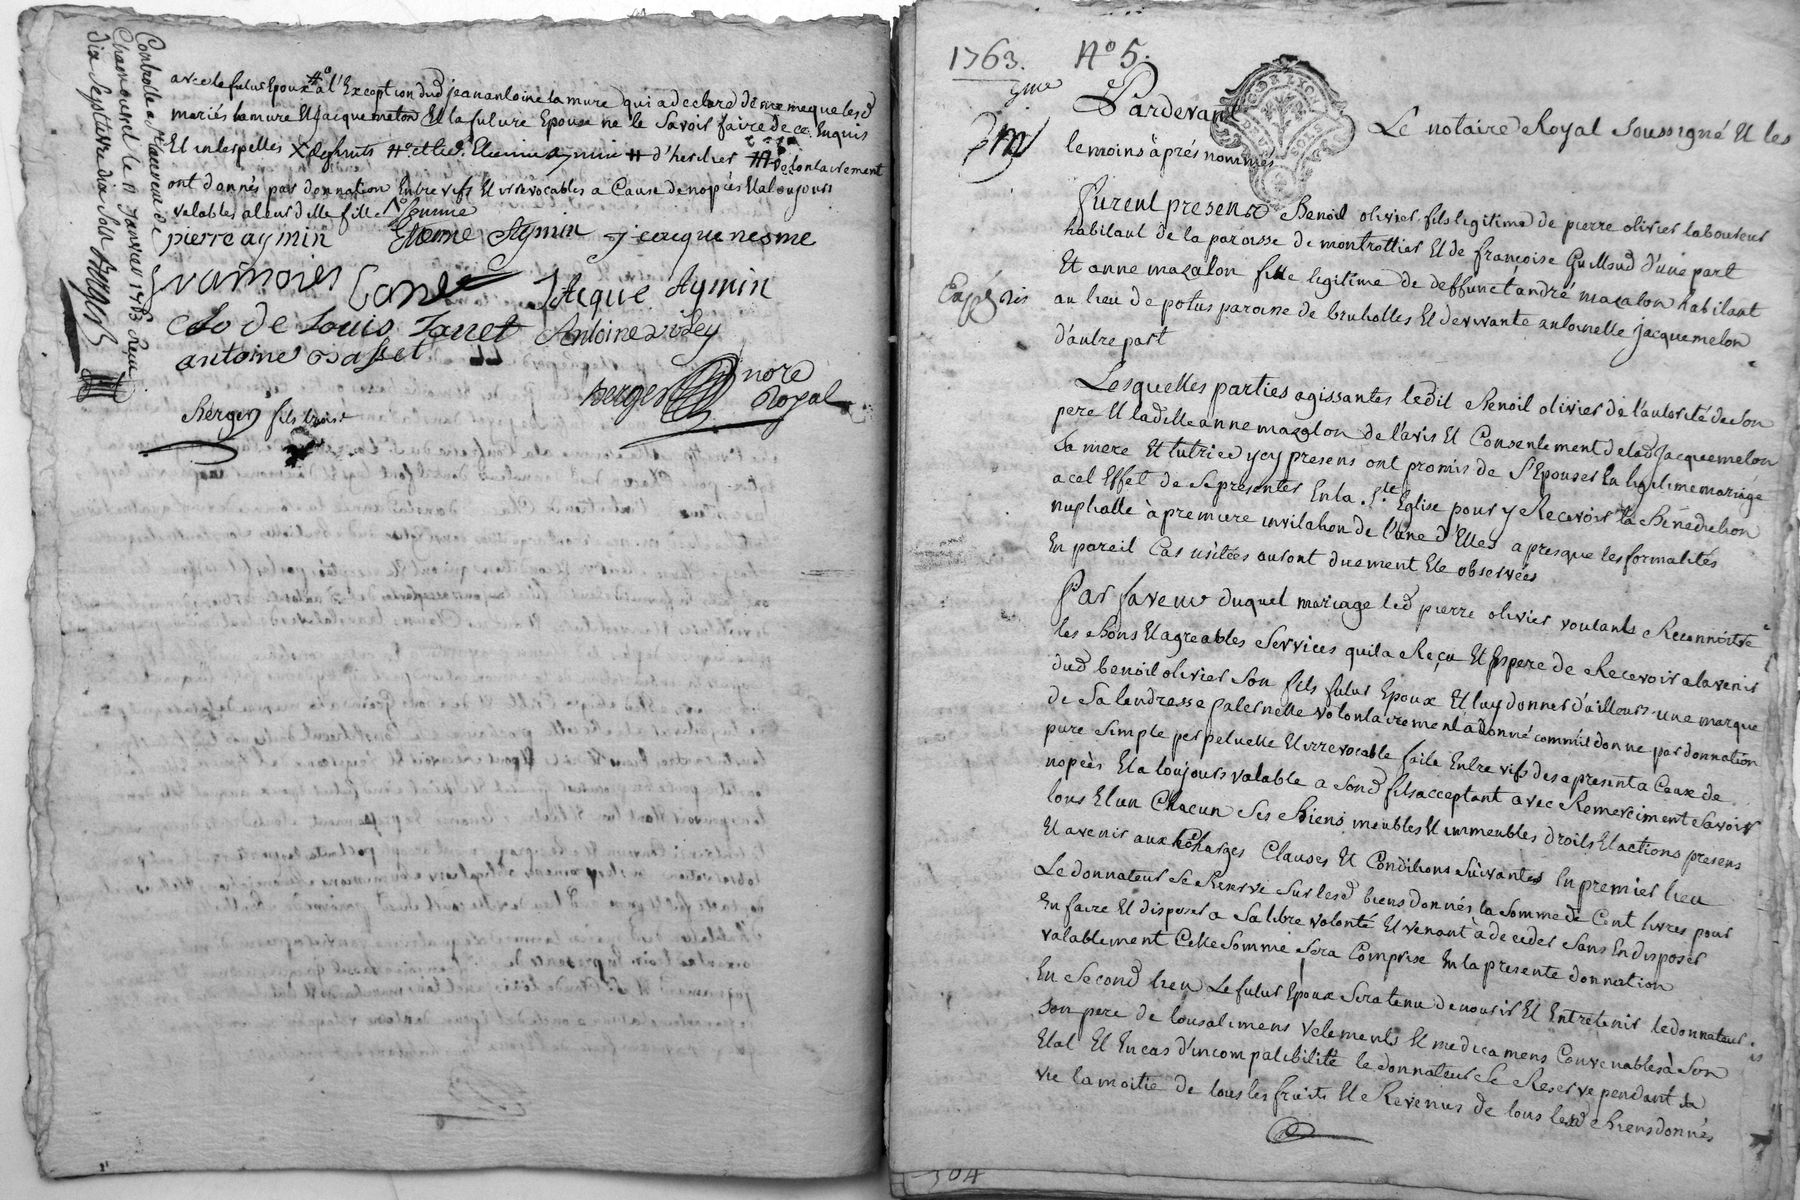 avec le futur Epoux #° a l'Exception dud jean antoine lamure qui a declaré de meme que lesd
mariés lamure Et jacquemelon Et la future Epouse ne le Savoir faire de ce Enquis
Et interpellés X deffunts #° et led. Etienne aymin # d'herelier # volontairement
ont donnés par donnation Entre vifs Et irrevocables a Cause de nopces Et a toujours
valables a leur ditte fille N° Somme
pierre aymin Etiene Aymin jacque nesme
Jacque Aymin
Clo de Louis Janet Antoine
antoine
berger nore
Royal
Berger fils
Controllé a
Chamousset le 11 Janvier 1763 Reçu
dix Sept livres dix Sols Berger
1763. N° 5.
Pardevant Le notaire Royal Soussigné Et les
temoins aprés nommés
Furent presents Benoit olivier fils legitime de pierre olivier laboureur
habitant de la paroisse de montrottier Et de françoise Guilloud d'une part
Et anne mazalon fille legitime de deffunct andré mazalon habitant
au lieu de potus paroisse de brulholles Et de vivante antoinette jacquemelon
d'autre part
Expédiés
Lesquelles parties agissantes ledit Benoit olivier de l'autorité de Son
pere Et laditte anne mazalon de l'avis Et Consentement de lad jacquemelon
Sa mere Et tutrice ycy presens ont promis de S'Epouser En legitime mariage
a cet Effet de Se presenter En la Ste Eglise pour y Recevoir la Bénédiction
nuptialle à premiere invitation de l'une d'Elles apres que les formalités
En pareil Cas usitées auront duement Eté observées
Par faveur duquel mariage led pierre olivier voulant Reconnoître
les Bons Et agreables Services quil a Reçu Et Espere de Recevoir a lavenir
dud benoit olivier Son fils futur Epoux Et luy donner d'ailleurs une marque
de Sa tendresse paternelle volontairement a donné comm'il donne par donnation
pure Simple perpetuelle Et irrevocable faite Entre vifs des a present a Cause de
nopces Et a toujours valable a Sond fils acceptant avec Remerciment Savoir
tous Et un Chacun Ses Biens meubles Et immeubles droits Et actions presens
Et avenir aux Charges Clauses Et Conditions Suivantes En premier lieu
Le donnateur Se Reserve Sur lesd biens donnés la Somme de Cent livres pour
En faire Et disposer a Sa libre volonté Et venant à deceder Sans En disposer
valablement Cette Somme Sera Comprise En la presente donnation
En Second lieu Le futur Epoux Sera tenu de nourir Et Entretenir le donnateur
Son pere de tous alimens vetements Et medicamens Convenables à Son
Etat Et En cas d'incompatibilité le donnateur Se Reserve pendant Sa
vie la moitie de tous les fruits Et Revenus de tous lesd Biens donnés